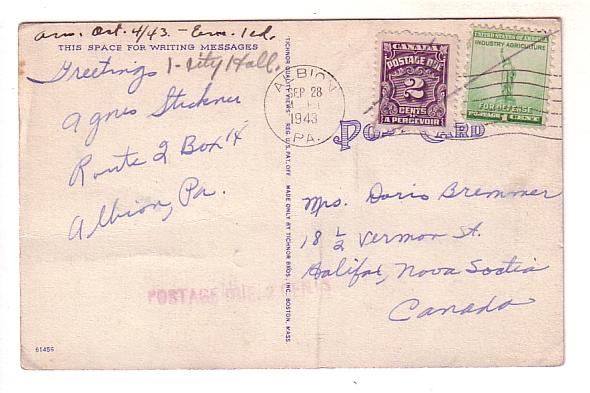 arr. Oct. 4/43. -
THIS SPACE FOR WRITING MESSAGES
Greetings 1 - City Hall.
Agnes Stickner
Route 2 Box 14
Albion, Pa.
POSTAGE DUE 2 CENTS
61456
TICHNOR QUALITY VIEWS REG. U.S. PAT. OFF. MADE ONLY BY TICHNOR BROS., INC., BOSTON, MASS.
ALBION
SEP 28
1943
PA.
CANADA
POSTAGE DUE
2
CENTS
A PERCEVOIR
UNITED STATES OF AMERICA
INDUSTRY AGRICULTURE
FOR DEFENSE
POSTAGE 1 CENT
POST CARD
Mrs. Doris Bremmer
18 1/2 Vermon St.
Halifax, Nova Soctia
Canada